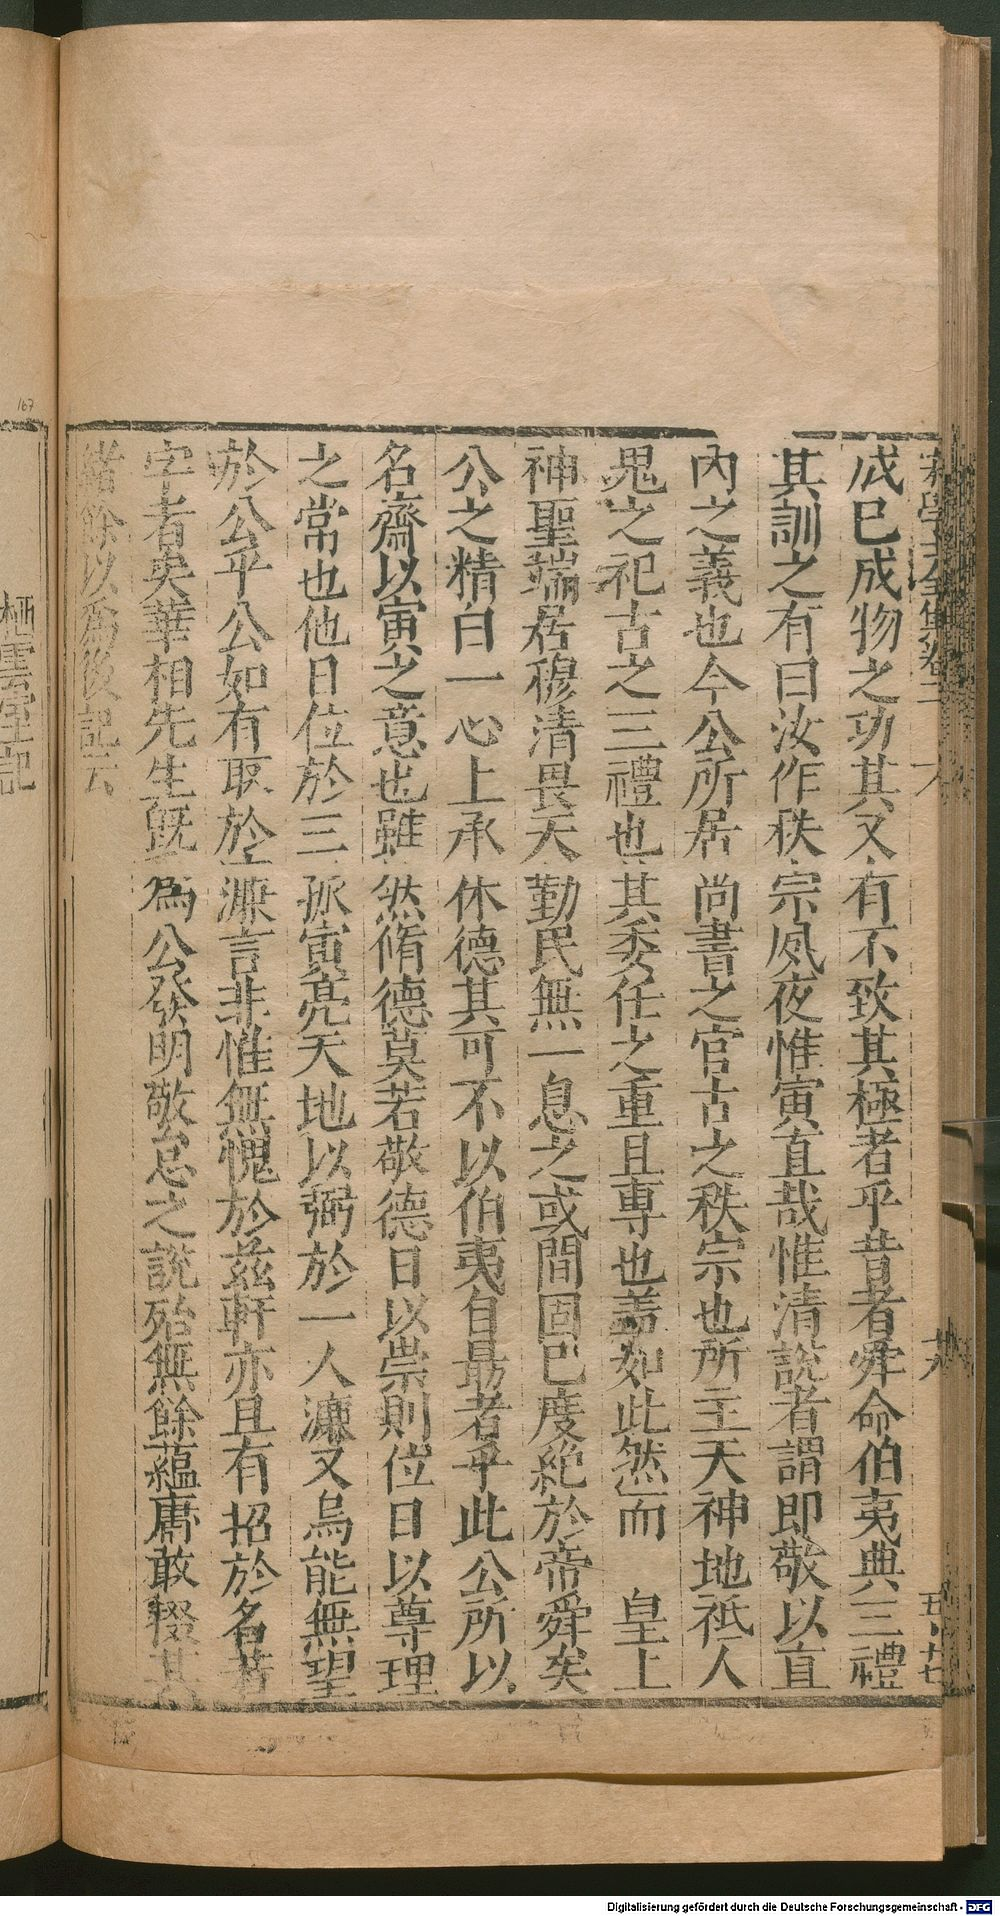 成巳成物之功其又有不致其極者乎昔者舜命伯夷典三禮
其訓之有曰汝作秩宗夙夜惟寅直哉惟清說者謂即敬以直
內之義也今公所居尚書之官古之秩宗也所主天神地祇人
鬼之祀古之三禮也其委任之重且專也盖如此然而 皇上
神聖端居穆清畏天勤民無一息之或間固巳度絶於帝舜矣
公之精白一心上承休德其可不以伯夷自勗者乎此公所以
名齋以寅之意也雖然脩德莫若敬德日以崇則位日以尊理
之常也他日位於三孤寅亮天地以弼於一人濂又烏能無望
於公乎公如有取於濂言非惟無愧於茲軒亦且有招於名若
字者矣華相先生旣爲公發明敬怠之說殆無餘蘊濂敢掇其
緒餘以爲後記云
栖雲室記
167
Digitalisierung gefördert durch die Deutsche Forschungsgemeinschaft - DFG